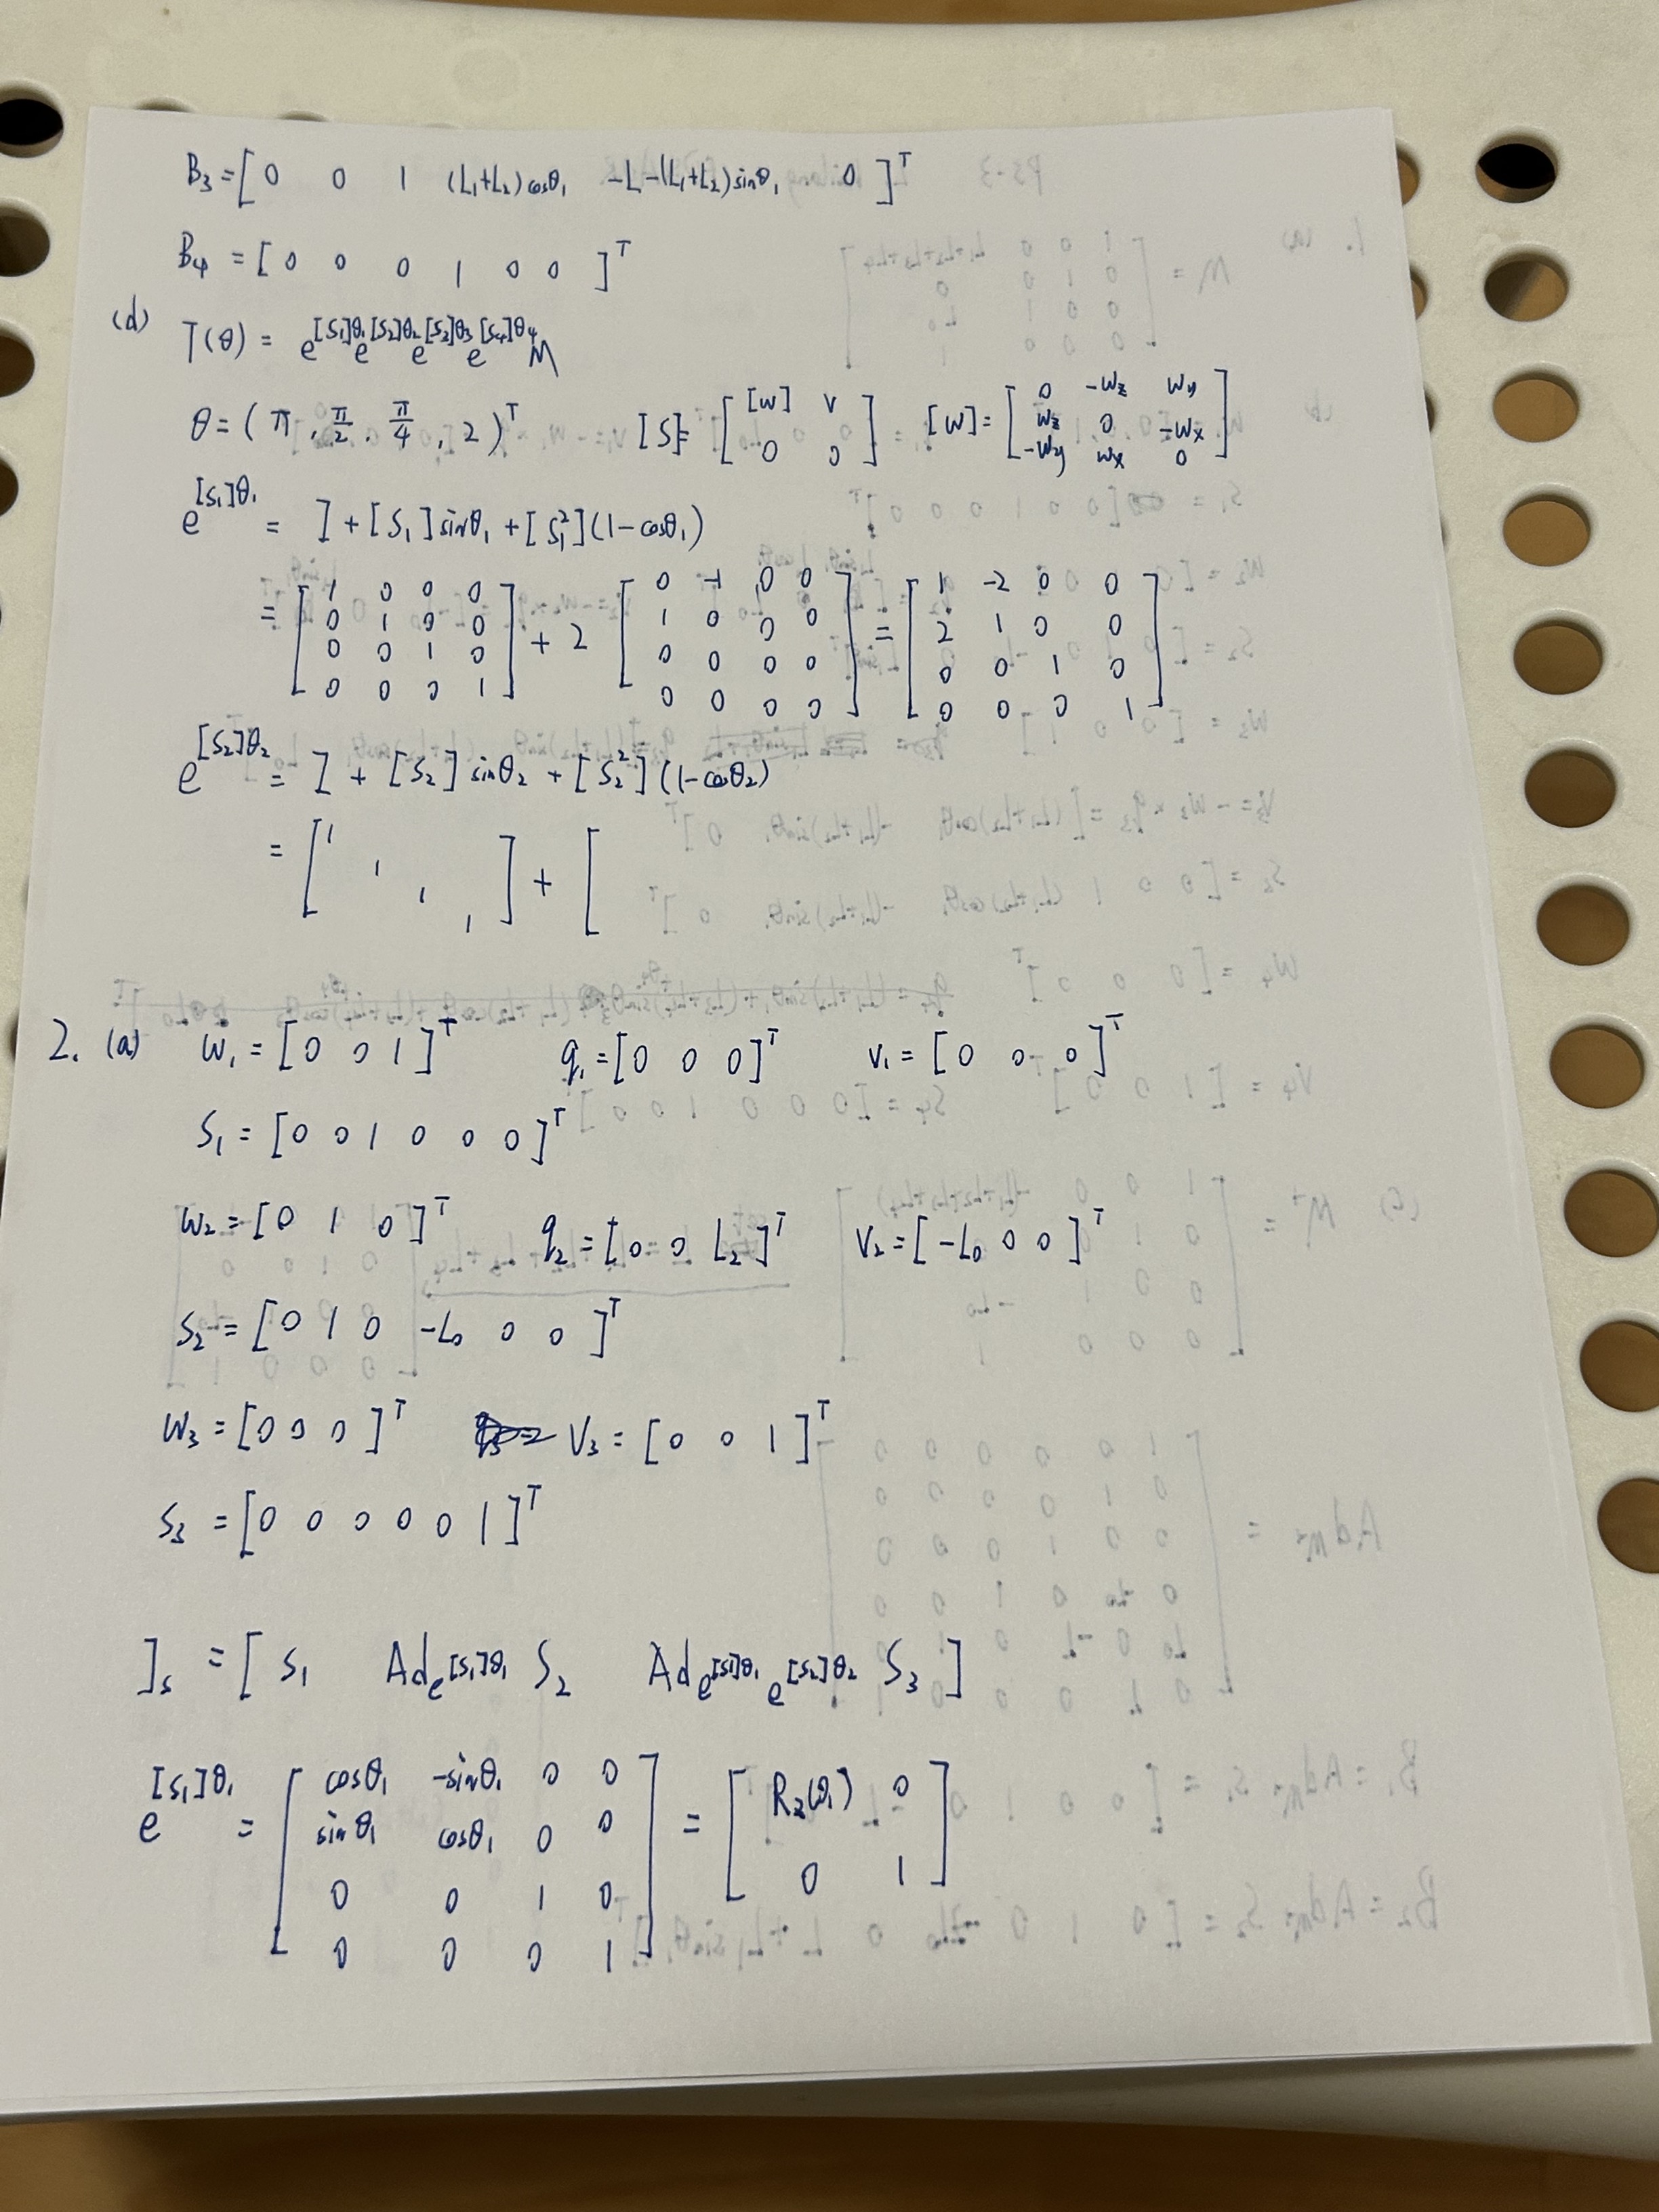 B₃ = [ 0 0 1 (L₁+L₂)cosθ₁ -L-(L₁+L₂)sinθ₁ 0 ]ᵀ
B₄ = [ 0 0 0 1 0 0 ]ᵀ
(d) T(θ) = e^{[S₁]θ₁} e^{[S₂]θ₂} e^{[S₃]θ₃} e^{[S₄]θ₄} M
θ = ( π, π/2, π/4, 2 )ᵀ [S] = [ [W] V ; 0 0 ] [W] = [ 0 -Wz Wy ; Wz 0 -Wx ; -Wy Wx 0 ]
e^{[S₁]θ₁} = I + [S₁] sinθ₁ + [S₁²](1-cosθ₁)
= [ 1 0 0 0 ; 0 1 0 0 ; 0 0 1 0 ; 0 0 0 1 ] + 2 [ 0 -1 0 0 ; 1 0 0 0 ; 0 0 0 0 ; 0 0 0 0 ] = [ 1 -2 0 0 ; 2 1 0 0 ; 0 0 1 0 ; 0 0 0 1 ]
e^{[S₂]θ₂} = I + [S₂] sinθ₂ + [S₂²](1-cosθ₂)
= [ 1 1 1 1 ] + [
2. (a) W₁ = [ 0 0 1 ]ᵀ q₁ = [ 0 0 0 ]ᵀ V₁ = [ 0 0 0 ]ᵀ
S₁ = [ 0 0 1 0 0 0 ]ᵀ
W₂ = [ 0 1 0 ]ᵀ q₂ = [ 0 0 L₂ ]ᵀ V₂ = [ -L₀ 0 0 ]ᵀ
S₂ = [ 0 1 0 -L₀ 0 0 ]ᵀ
W₃ = [ 0 0 0 ]ᵀ V₃ = [ 0 0 1 ]ᵀ
S₃ = [ 0 0 0 0 0 1 ]ᵀ
Jₛ = [ S₁ Ad_{e^{[S₁]θ₁}} S₂ Ad_{e^{[S₁]θ₁} e^{[S₂]θ₂}} S₃ ]
e^{[S₁]θ₁} = [ cosθ₁ -sinθ₁ 0 0 ; sinθ₁ cosθ₁ 0 0 ; 0 0 1 0 ; 0 0 0 1 ] = [ R_z(θ₁) 0 ; 0 1 ]